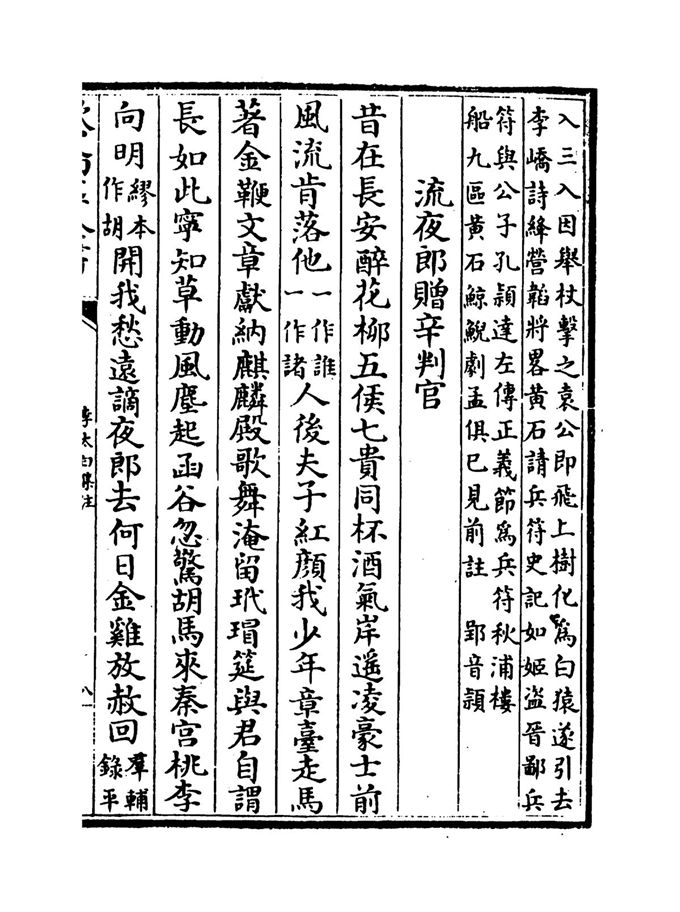 入三入因舉杖擊之袁公即飛上樹化爲白猿遂引去
李嶠詩絳營韜將畧黄石請兵符史記如姬盜晉鄙兵
符與公子孔頴達左傳正義節爲兵符秋浦樓
船九區黄石鯨鯢劇孟俱已見前註 郢音頴
流夜郎贈辛判官
昔在長安醉花柳五侯七貴同杯酒氣岸遥凌豪士前
風流肯落他一作誰一作諸人後夫子紅顔我少年章臺走馬
著金鞭文章獻納麒麟殿歌舞淹留玳瑁筵與君自謂
長如此寧知草動風塵起函谷忽驚胡馬來秦宫桃李
向明繆本作胡開我愁遠謫夜郎去何日金雞放赦回羣輔録平
李太白集注
八